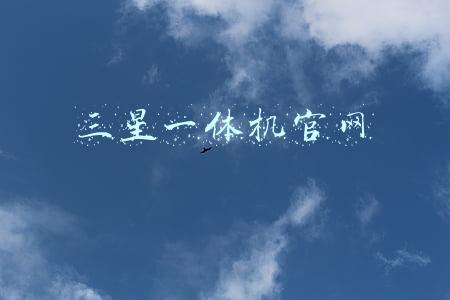 三星一体机官网